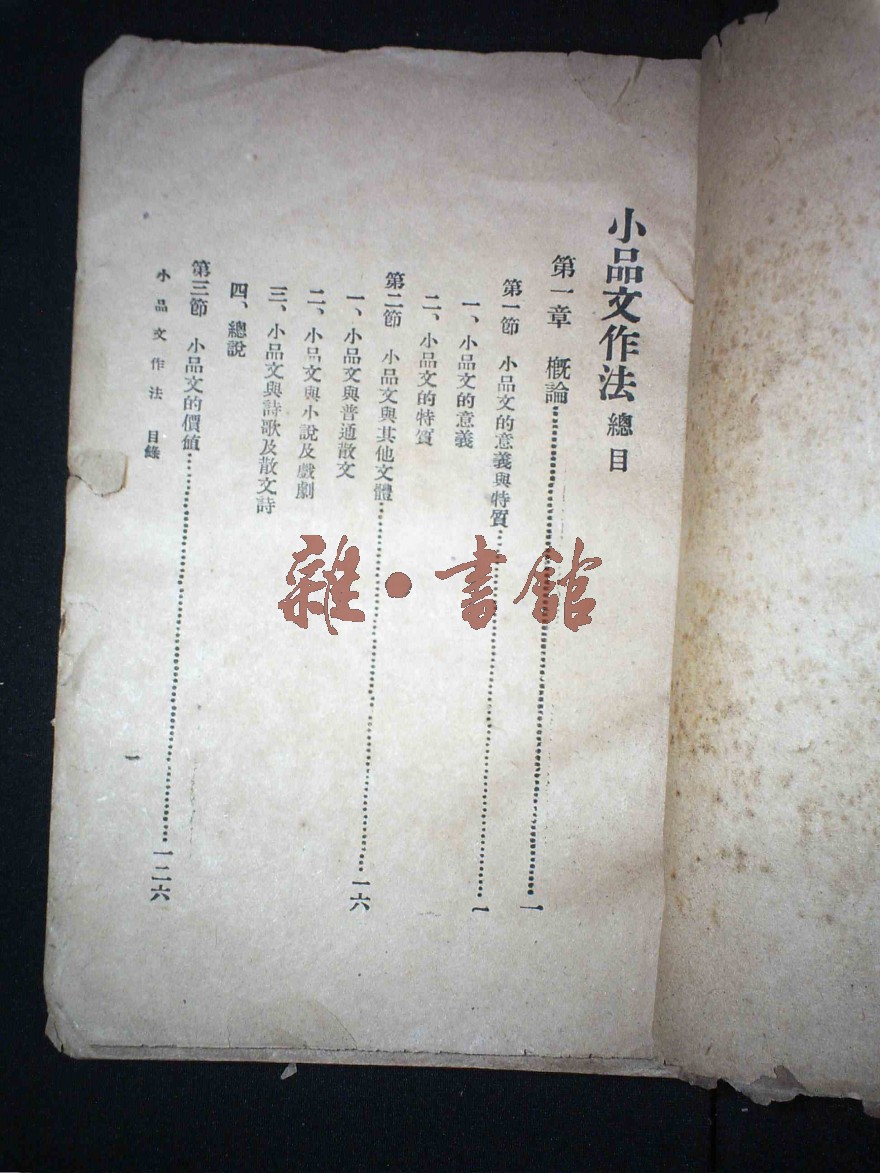 小品文作法 總目
第一章 概論……一
第一節 小品文的意義與特質……一
一、小品文的意義
二、小品文的特質
第二節 小品文與其他文體……一六
一、小品文與普通散文
二、小品文與小說及戲劇
三、小品文與詩歌及散文詩
四、總說
第三節 小品文的價値……一二六
小品文作法 目錄
一
雜·書館